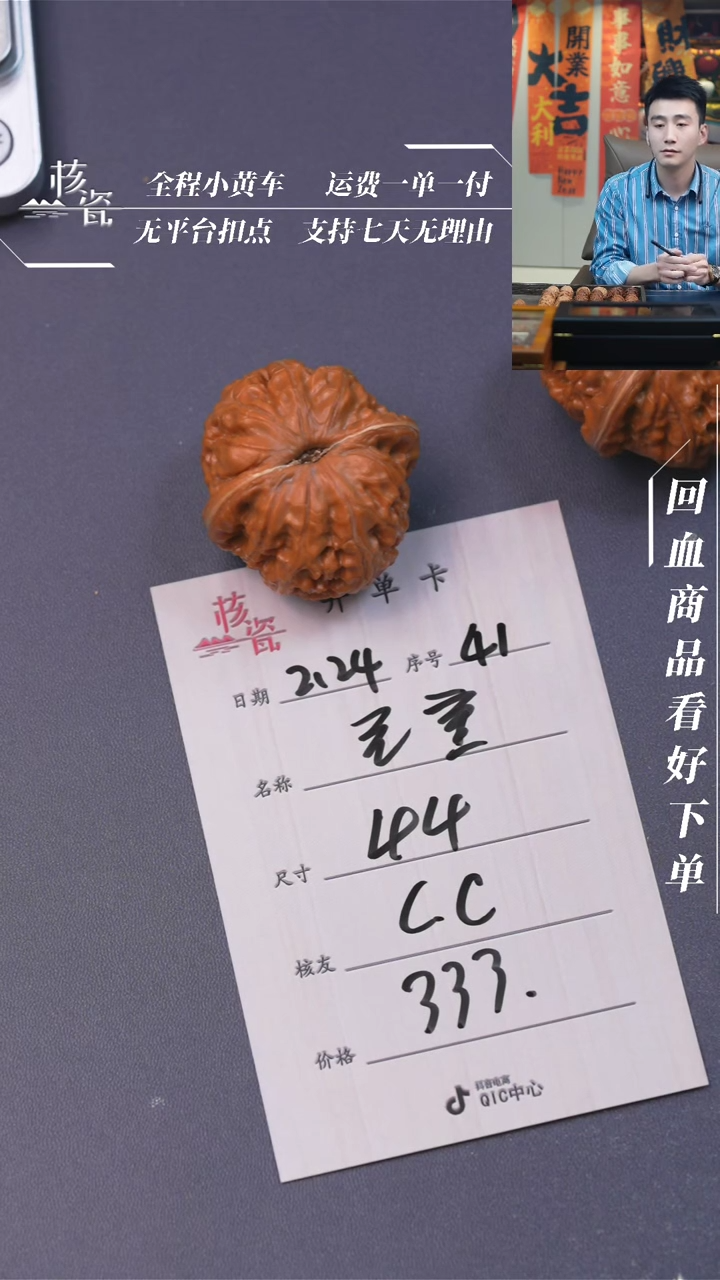 開業
大吉
大利
事事如意
財
核瓷
全程小黄车 运费一单一付
无平台扣点 支持七天无理由
回血商品看好下单
核瓷
开单卡
日期 2.24 序号 41
名称
尺寸 44
核友 CC
价格 333.
抖音电商
QIC中心